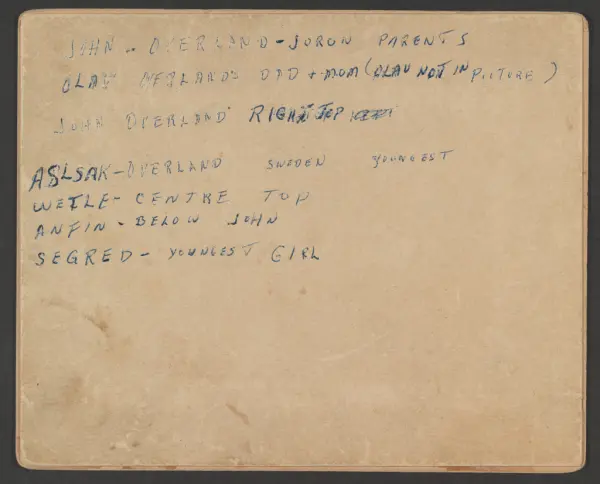 JOHN - OVERLAND - JORUN PARENTS
OLAV OVERLAND'S DAD + MOM (OLAV NOT IN PICTURE)
JOHN OVERLAND RIGHT TOP
ASLSAK - OVERLAND SWEDEN YOUNGEST
WETLE - CENTRE TOP
ANFIN - BELOW JOHN
SEGRED - YOUNGEST GIRL